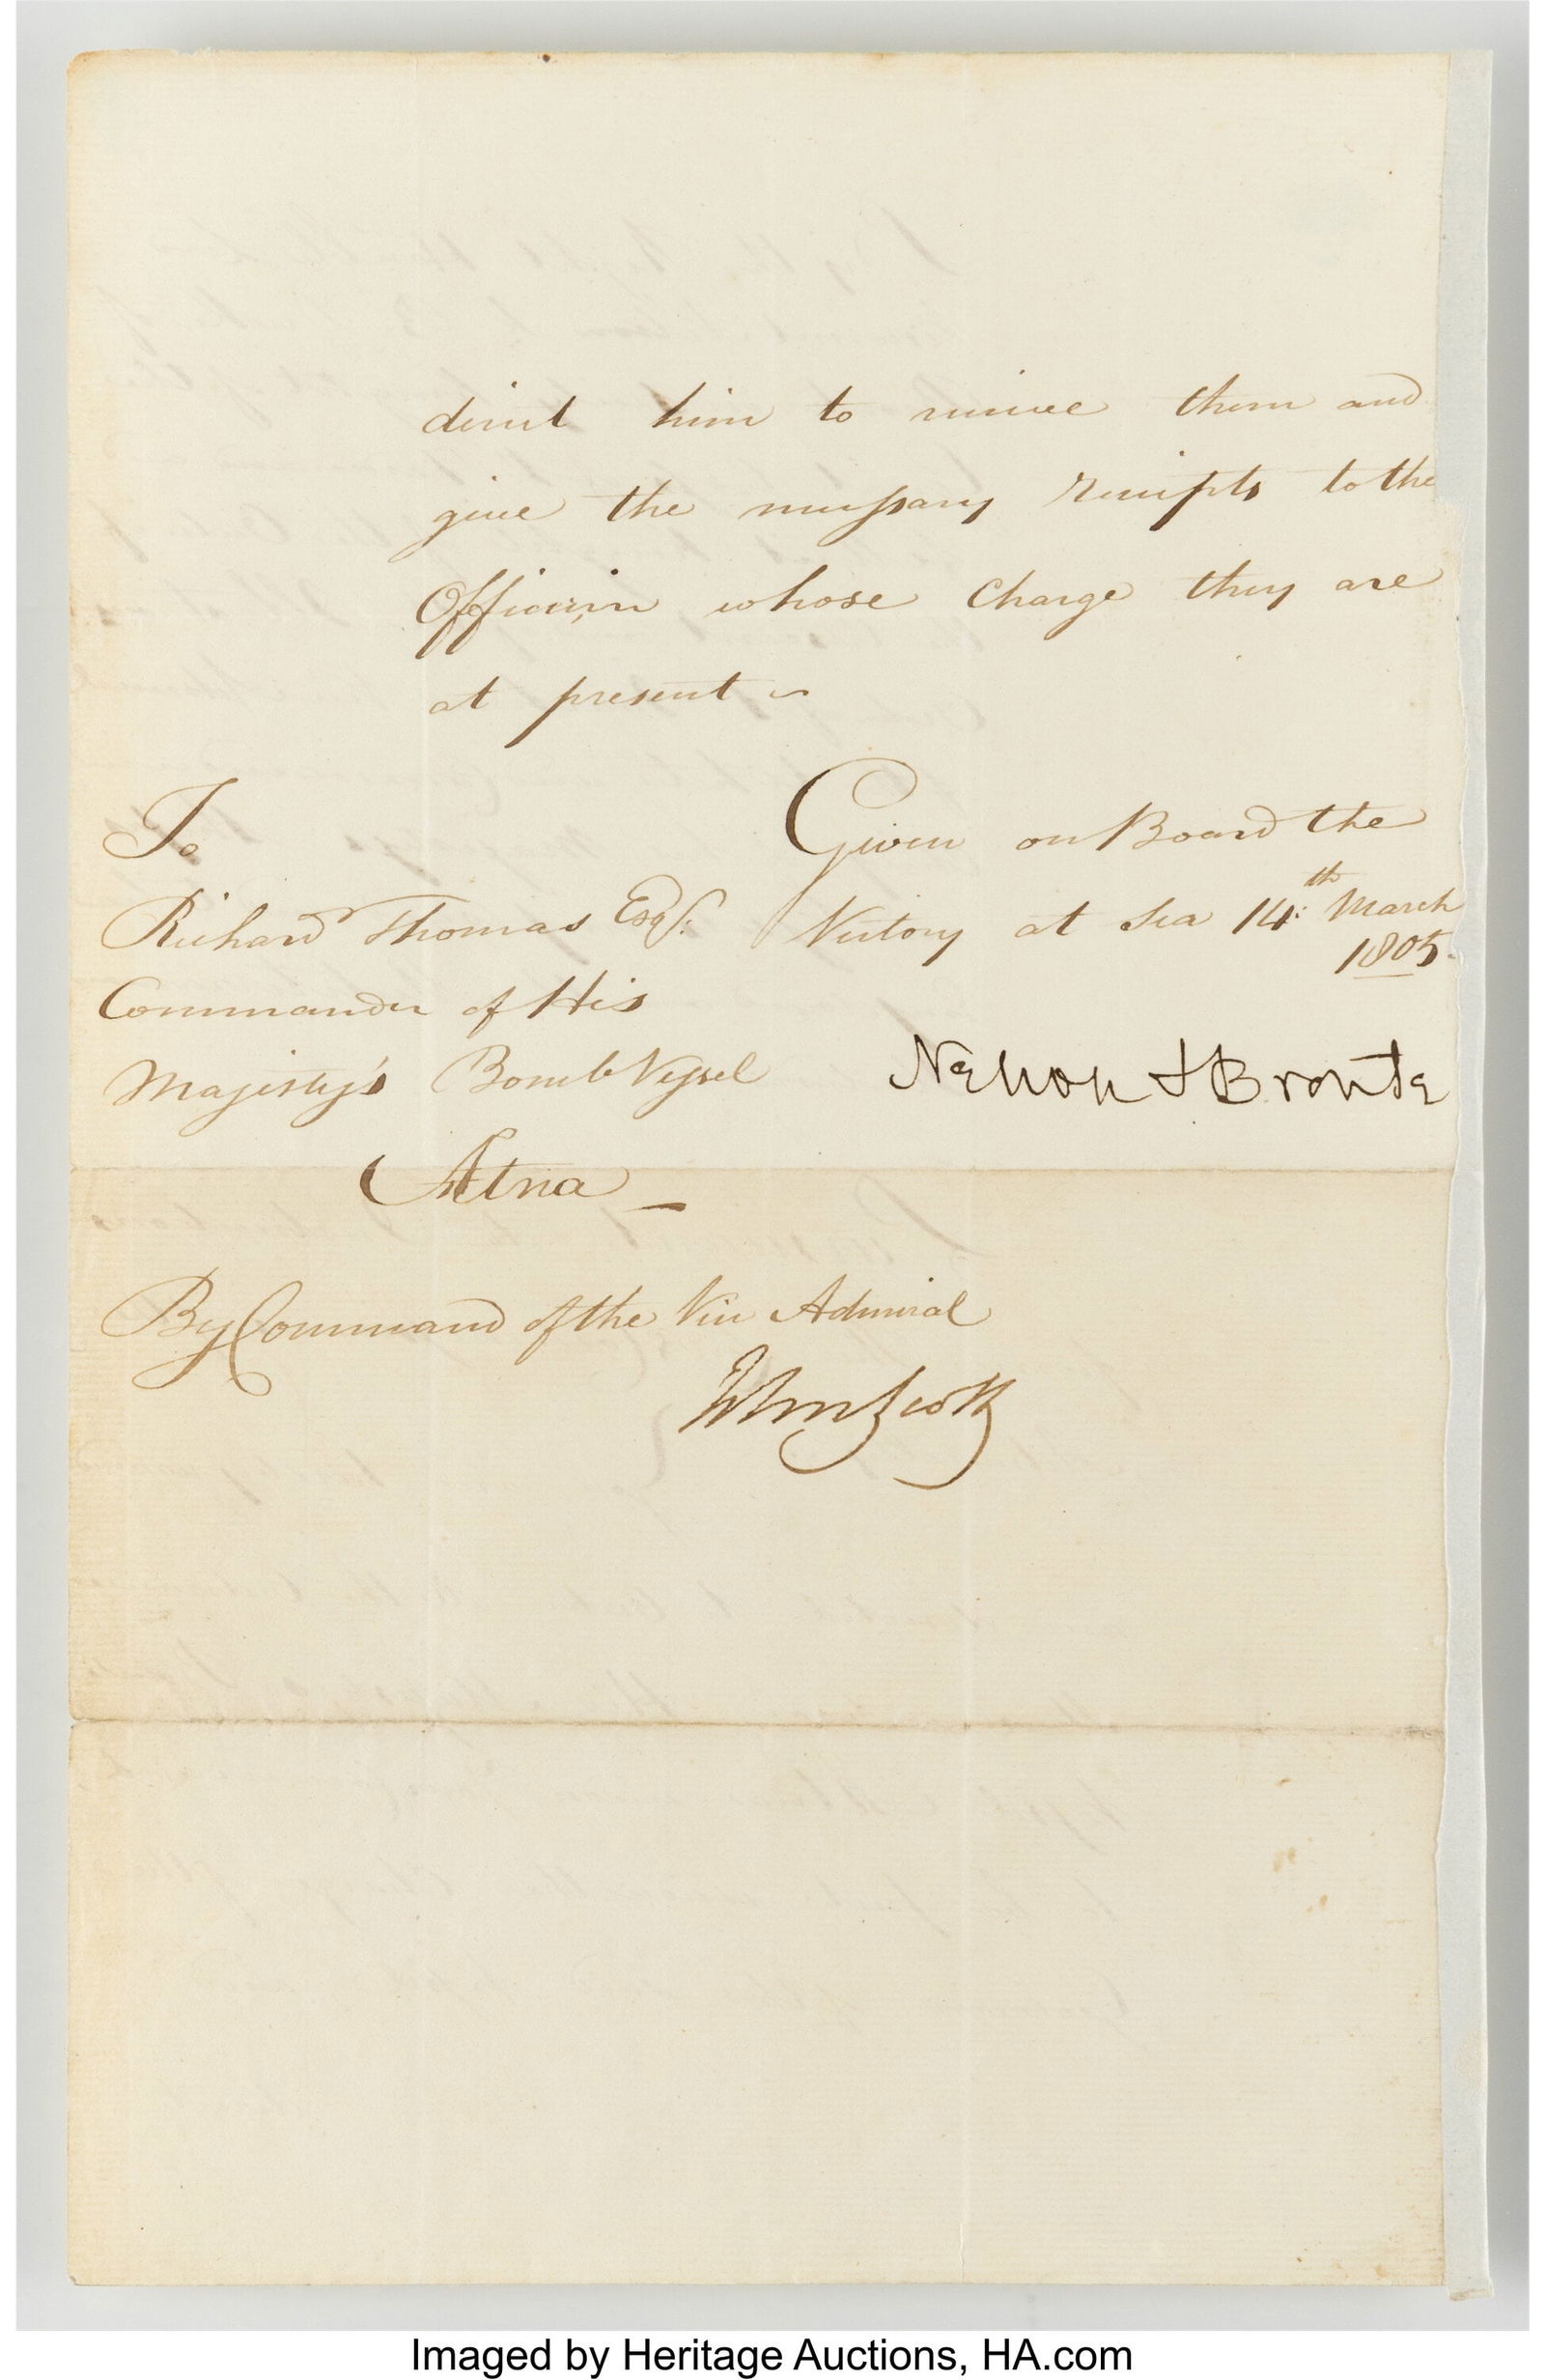 direct him to receive them and
give the necessary Receipts to the
Officer, in whose Charge they are
at present ~
To
Given on Board the
Richard Thomas Esqr. Victory at Sea 14th March
1805.
Commander of His
Majesty's Bomb Vessel
Nelson & Bronte
Ætna _
By Command of the Vice Admiral
John Scott
Imaged by Heritage Auctions, HA.com